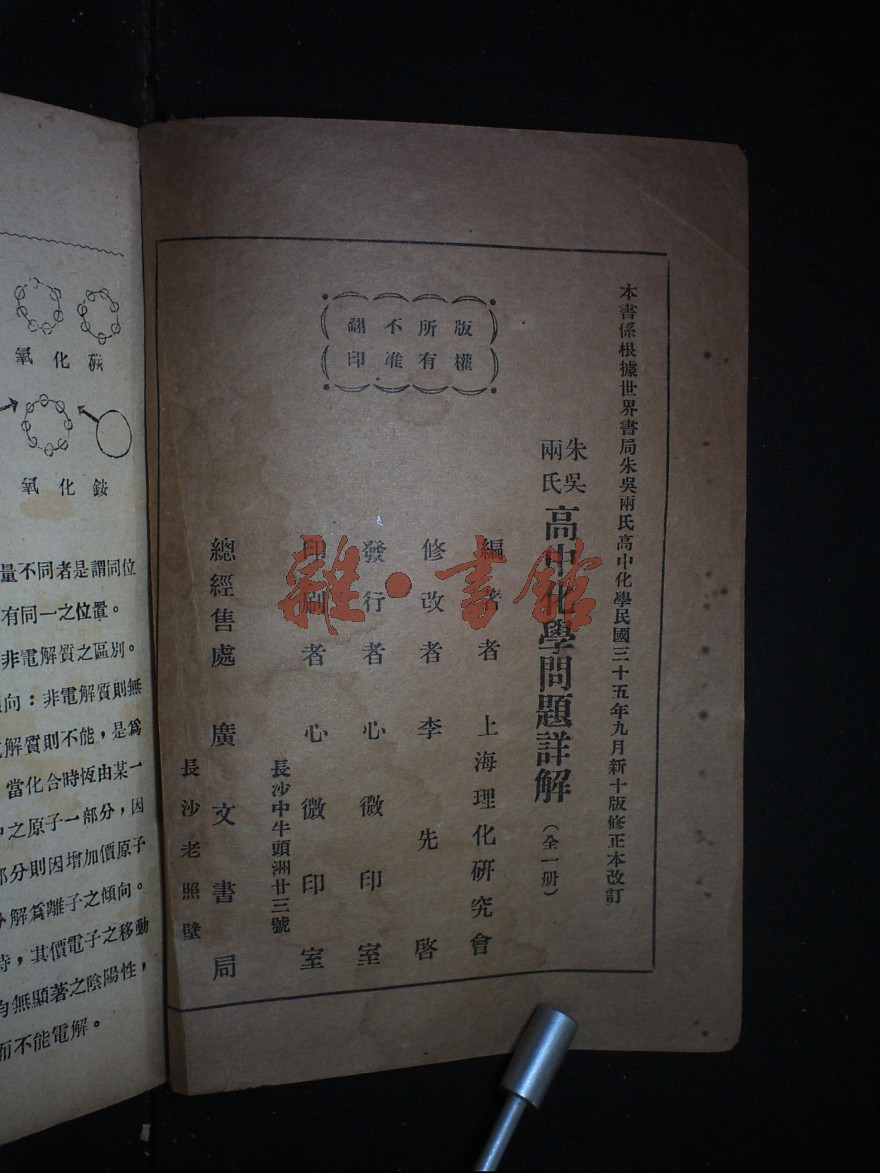 本書係根據世界書局朱吳兩氏高中化學民國三十五年九月新十版修正本改訂
朱吳
兩氏
高中化學問題詳解(全一册)
版權
所有
不准
翻印
編著者 上海理化研究會
修改者 李先啓
發行者 心微印室
印刷者 心微印室
長沙中牛頭洲廿三號
總經售處 廣文書局
長沙老照壁
雜·書館
氧化碳
氧化銨
量不同者是謂同位
有同一之位置。
非電解質之區別。
向:非電解質則無
解質則不能,是爲
當化合時恆由某一
中之原子一部分,因
部分則因增加價原子
分解爲離子之傾向。
時,其價電子之移動
有無顯著之陰陽性,
而不能電解。